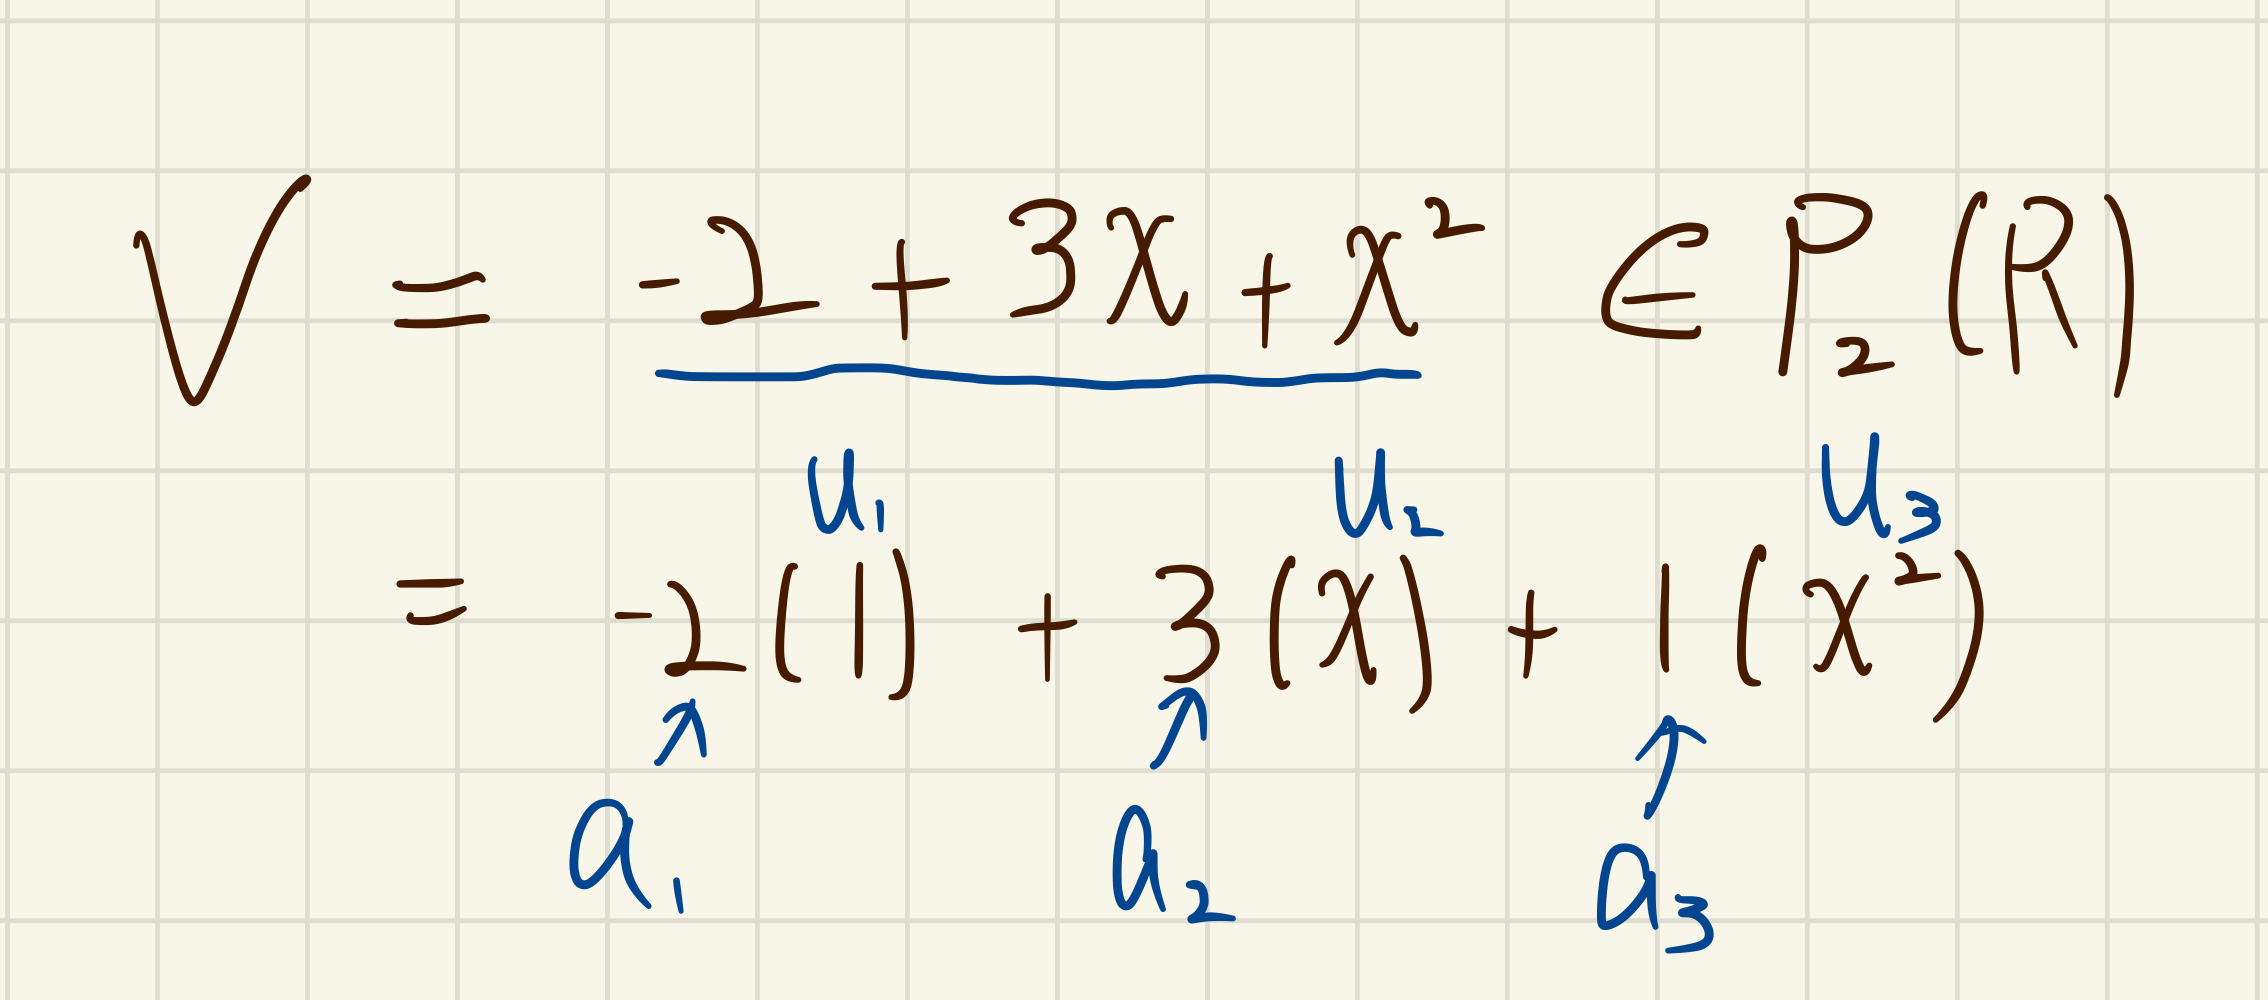 V = -2 + 3x + x² ∈ P₂(R)
u₁ u₂ u₃
= -2(1) + 3(x) + 1(x²)
a₁ a₂ a₃